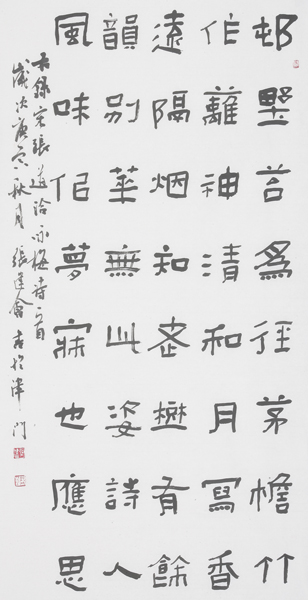 邨墅苔為徑茅檐竹
作離神清和月寫香
遠隔烟知老樹有餘
韻別華無此姿詩人
風味佀夢寐也應思
右錄宋張道洽詠梅詩一首
歲次庚寅秋月張建會書於津門